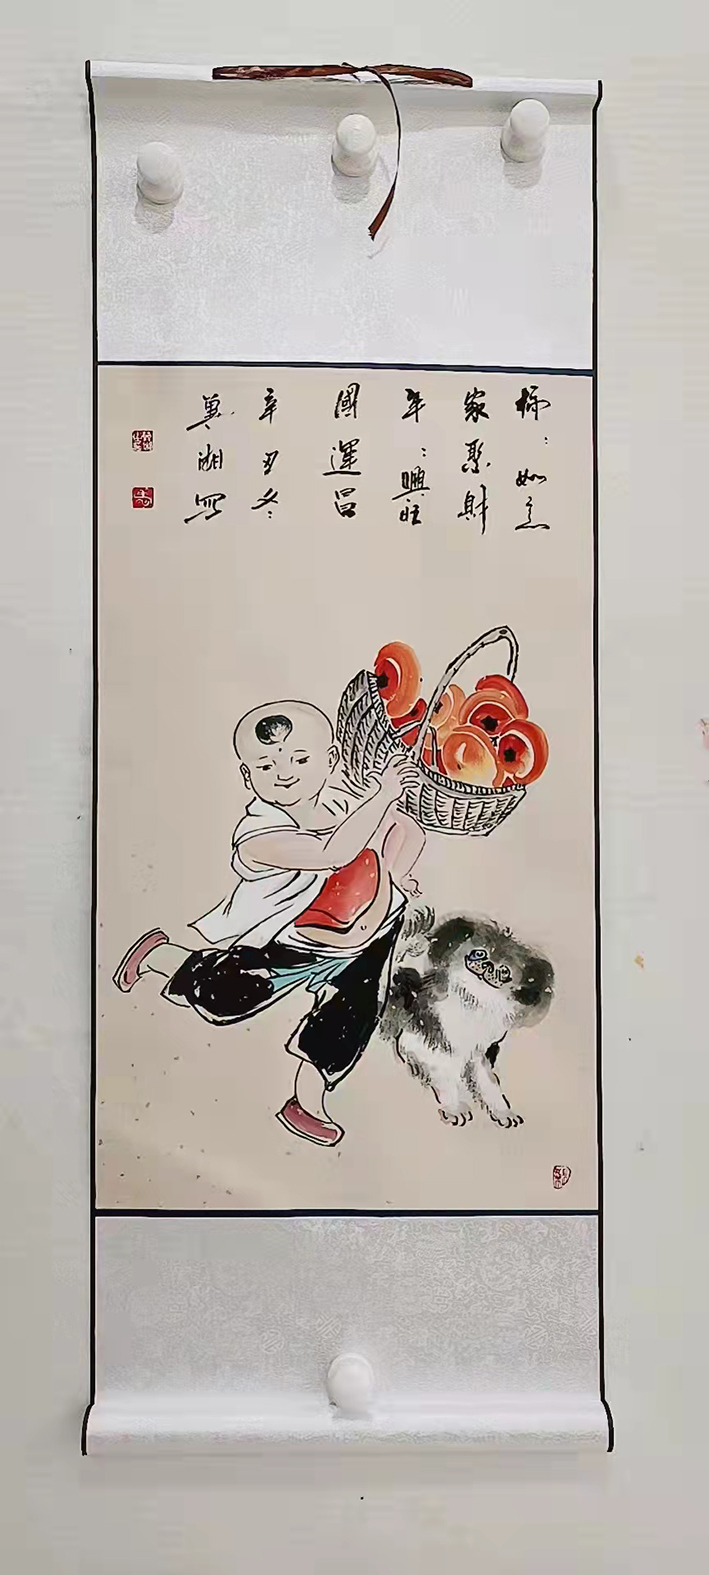 柿：如意
家聚財
年：興旺
國運昌
辛丑冬：
湖寫